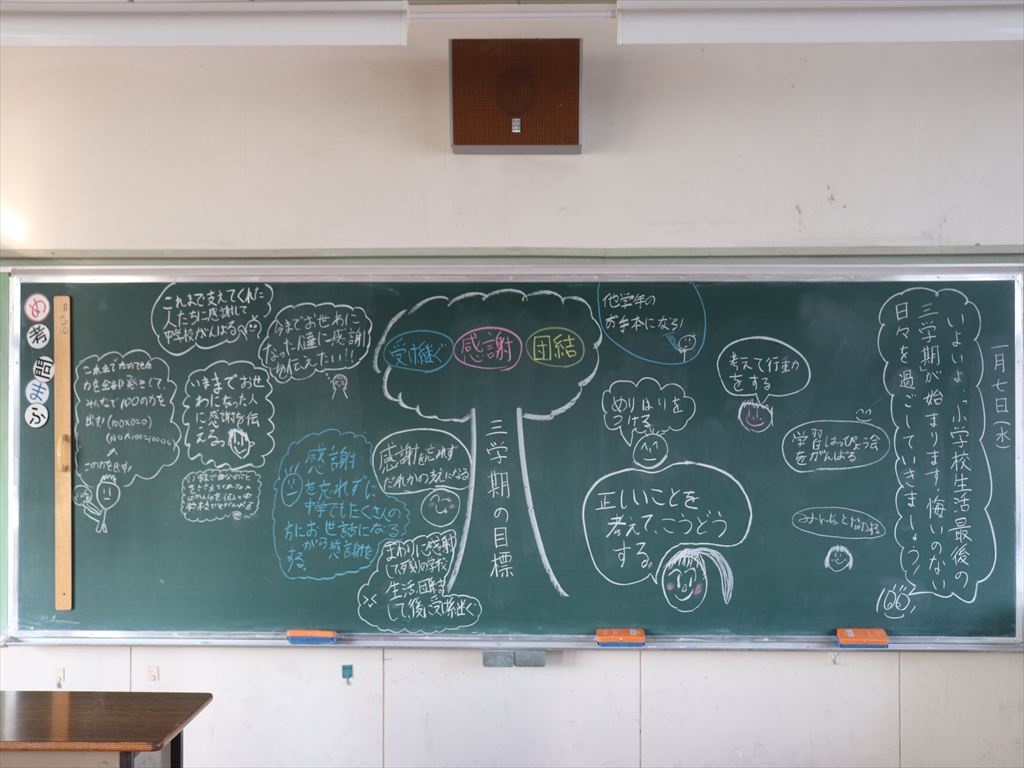 一月七日(水)
いよいよ、小学校生活最後の
三学期が始まります。悔いのない
日々を過ごしていきましょう!
受け継ぐ
感謝
団結
三学期の目標
他学年の
お手本になる!
考えて行動
をする
めりはりを
つける。
学習はっぴょう会
をがんばる
みんなと協力する
正しいことを
考えて、こうどう
する。
感謝を忘れず
だれかの支えになる
まわりに感謝
して残りの学校
生活、団結
して、後、受け継ぐ
感謝
を忘れずに
中学でもたくさんの
方にお世話になる
から感謝を
する。
今までおせわに
なった人達に感謝
を伝えたい!!
これまで支えてくれた
人たちに感謝して
中学校がんばる
いままでおせ
わになった人
に感謝を伝
える。
これまでためてきた
力を全部発きして、
みんなで100の力を
出す!
め
考
問
ま
ふ